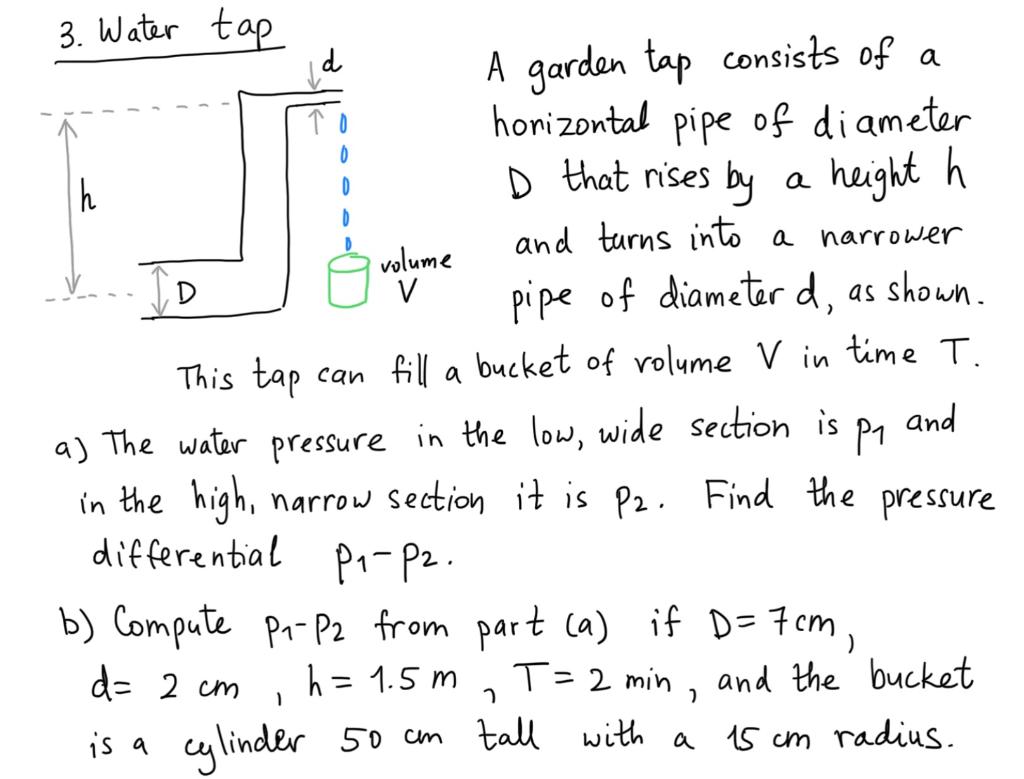 3. Water tap
d
h
D
volume
V
A garden tap consists of a
horizontal pipe of diameter
D that rises by a height h
and turns into a narrower
pipe of diameter d, as shown.
This tap can fill a bucket of volume V in time T.
a) The water pressure in the low, wide section is p1 and
in the high, narrow section it is p2. Find the pressure
differential p1-p2.
b) Compute p1-p2 from part (a) if D= 7cm,
d= 2 cm, h= 1.5 m, T= 2 min, and the bucket
is a cylinder 50 cm tall with a 15 cm radius.